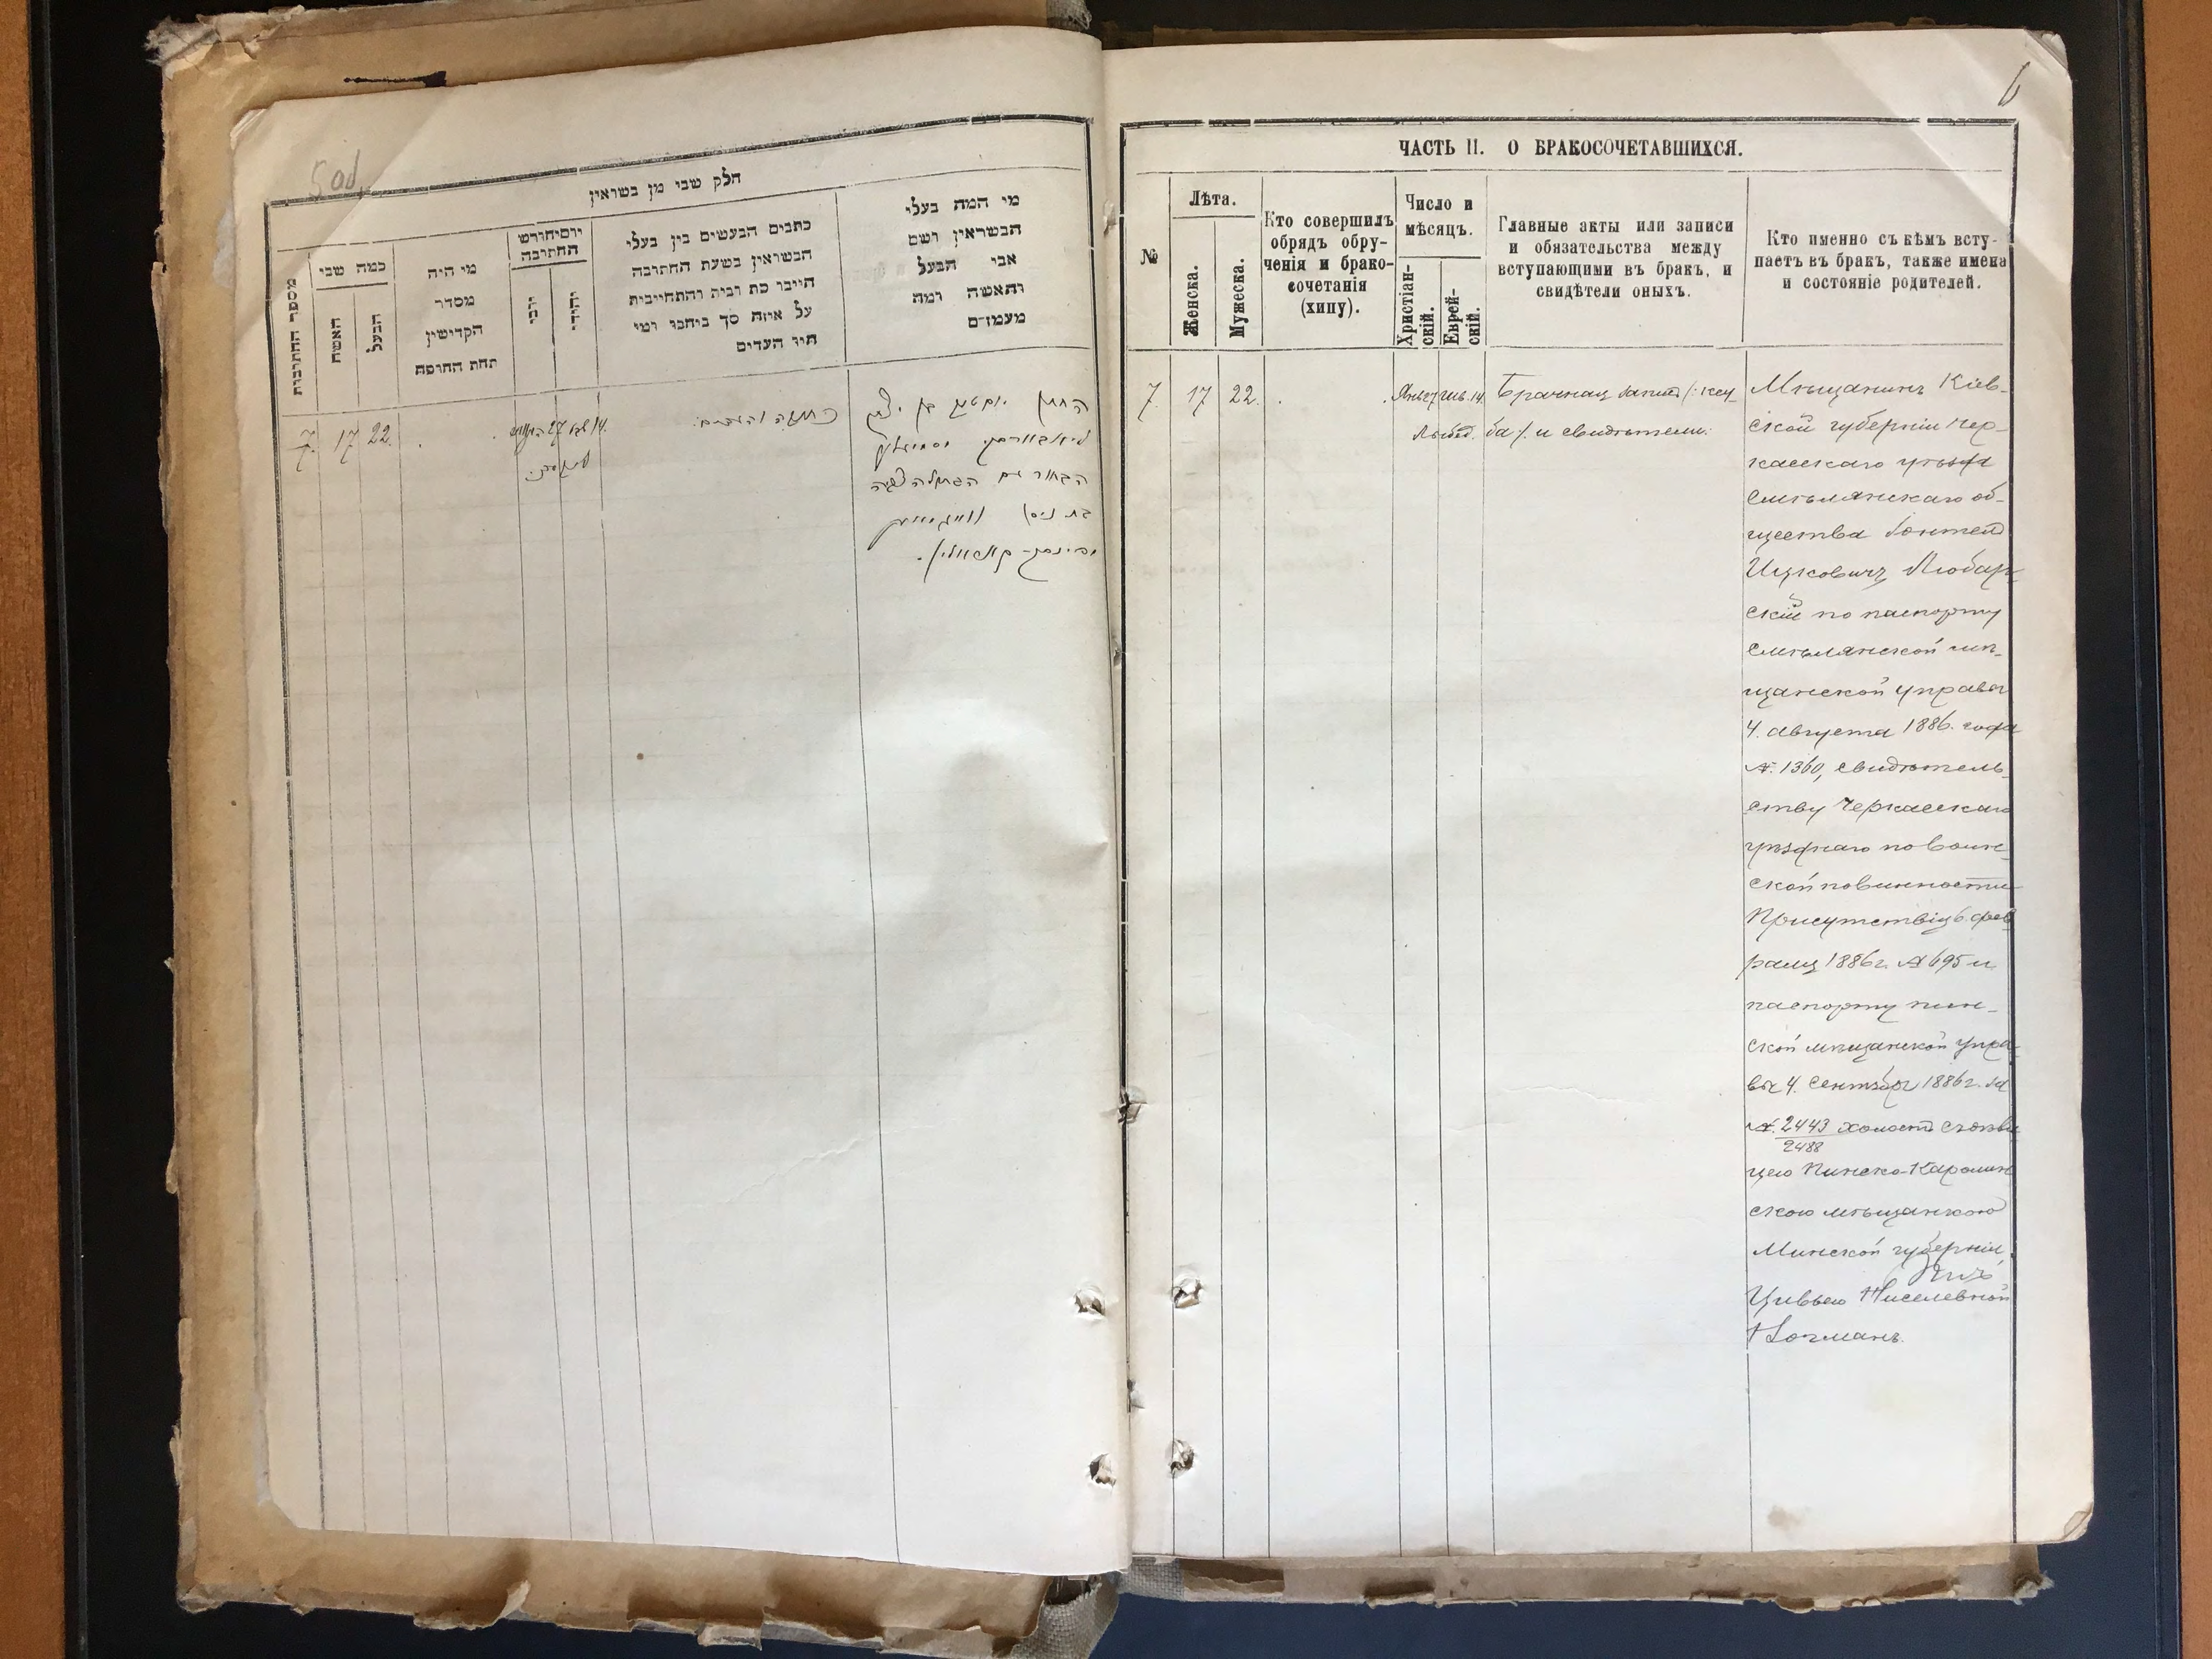 5 об.
חלק שני מן בשראין
מספר החתונות
כמה שני
האשה
הבעל
מי היה
מסדר
הקדישין
תחת החופה
יוםיחורש
החתונה
יוני
יהודי
כתבים הנעשים בין בעלי
הנשראין בשעת החתונה
חייבו כת ובית והתחייבות
על איזה סך ביחבו ומי
היו העדים
מי המה בעלי
הנשראין ושם
אבי הבעל
והאשה ומה
מעמדם
7. 17 22. . . 27 14
כתובה והעדים:
החתן בן יצחק
הבחור עם הבתולה צביה
בת ניסל
6
ЧАСТЬ II. О БРАКОСОЧЕТАВШИХСЯ.
№
Лѣта.
Женска.
Мужеска.
Кто совершилъ
обрядъ обру-
ченія и брако-
сочетанія
(хипу).
Число и
мѣсяцъ.
Христіан-
скій.
Еврей-
скій.
Главные акты или записи
и обязательства между
вступающими въ бракъ, и
свидѣтели оныхъ.
Кто именно съ кѣмъ всту-
паетъ въ бракъ, также имена
и состояніе родителей.
7. 17 22. . . Янв 27 Шв. 14. Брачная запись /: ксу-
ба :/ и свидѣтели:
Мѣщанинъ Кіев-
ской губерніи Чер-
касскаго уѣзда
Смѣлянскаго об-
щества
Ицковичъ Любар-
скій по паспорту
Смѣлянской мѣ-
щанской управы
4. августа 1886. года
№. 1360, свидѣтель-
ству Черкасскаго
уѣзднаго по воин-
ской повинности
Присутствія 6. фев-
раля 1886 г. № 695 и
паспорту пин-
ской мѣщанской упра-
вы 4. Сентября 1886 г. за
№. 2443 холостъ съ дѣви-
2488
цею Пинско-Каролин
скою мѣщанкою
Минской губерніи
Цивьею Ниселевной